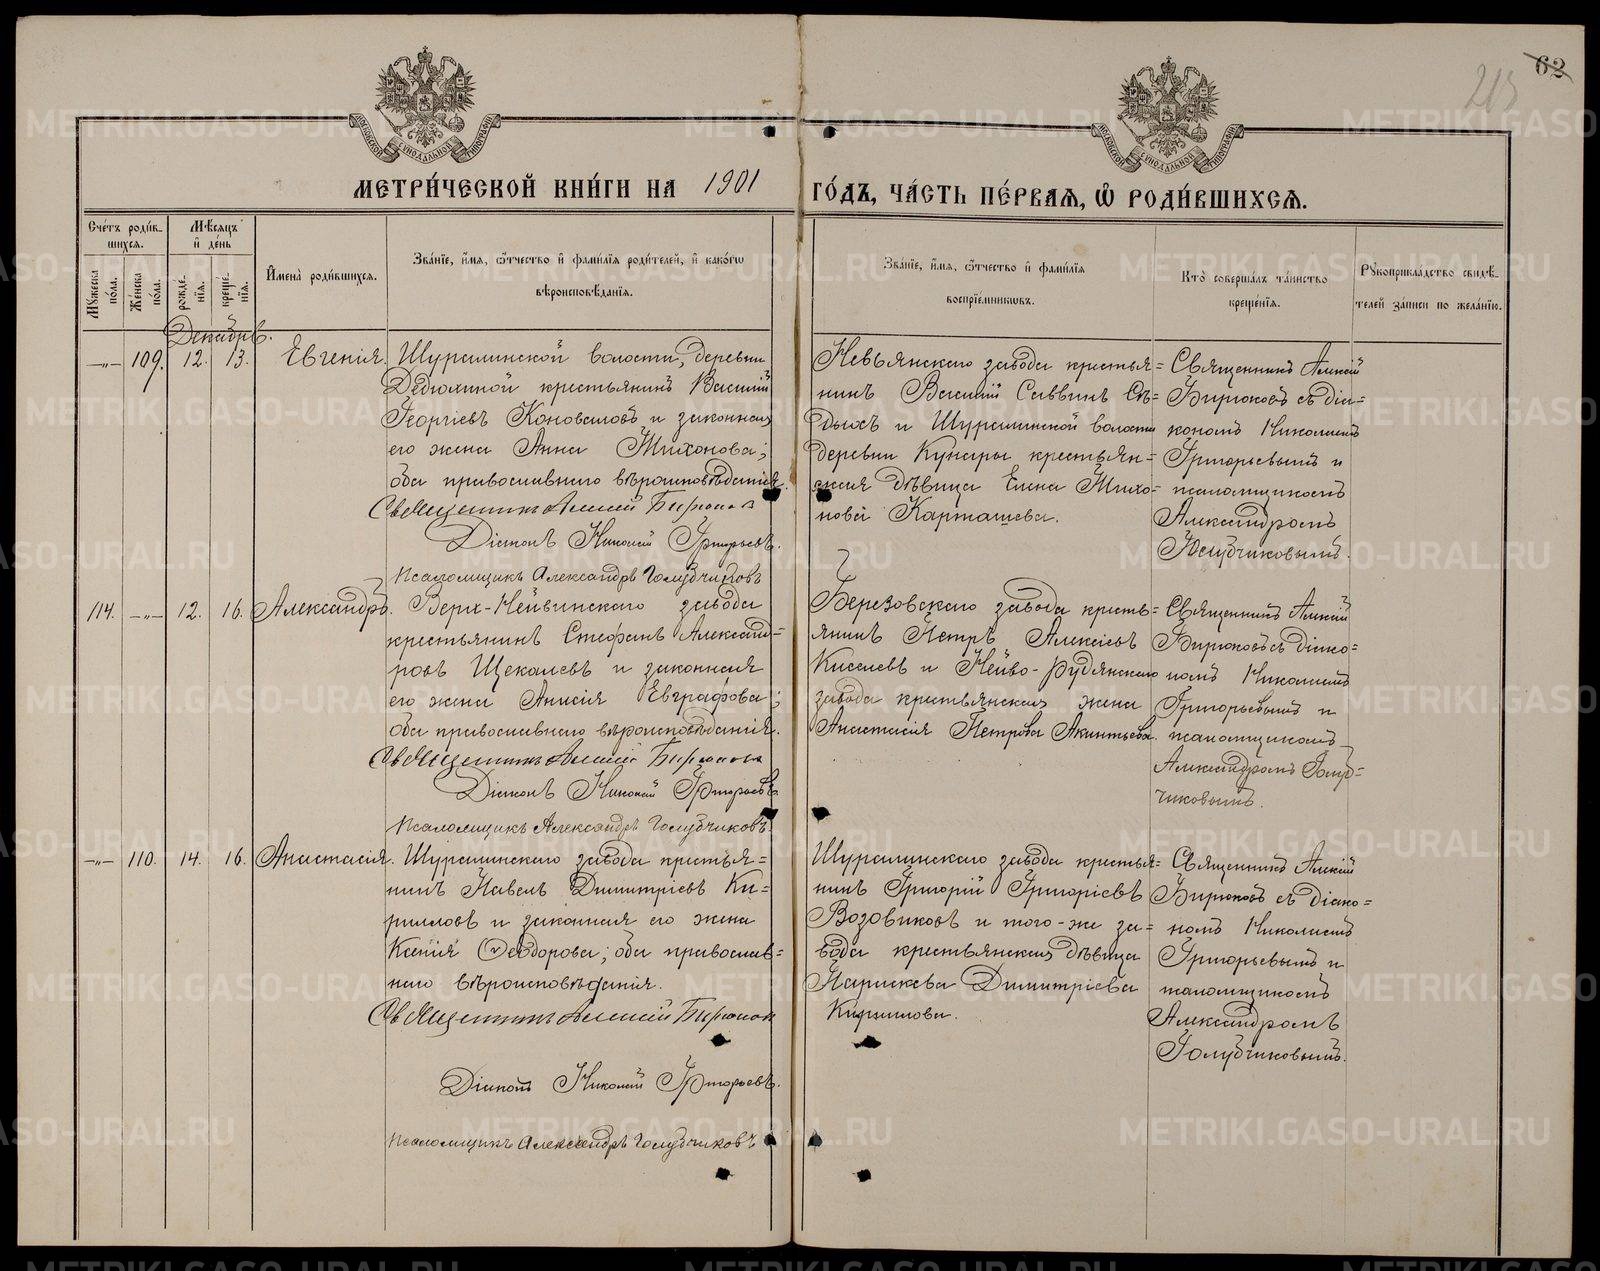 62
213
МОСКОВСКОЙ СѴНОДАЛЬНОЙ ТИПОГРАФІИ
МОСКОВСКОЙ СѴНОДАЛЬНОЙ ТИПОГРАФІИ
МЕТРИ́ЧЕСКОЙ КНИ́ГИ НА 1901 ГО́ДЪ, ЧА́СТЬ ПЕ́РВАѦ, Ѡ РОДИ́ВШИХСѦ.
Сче́тъ роди́в-
шихсѧ.
Мѣ́сѧцъ
и҆ де́нь
Мꙋ́жеска
по́ла.
Же́нска
по́ла.
рожде-
нїѧ.
креще-
нїѧ.
И҆мена̀ роди́вшихсѧ.
Зва́нїе, и҆́мѧ, ѻ҆́тчество и҆ фами́лїѧ роди́телей, и҆ како́гѡ
вѣроисповѣ́данїѧ.
Зва́нїе, и҆́мѧ, ѻ҆́тчество и҆ фами́лїѧ
воспрїе́мникѡвъ.
Кто̀ соверша́лъ та́инство
креще́нїѧ.
Рꙋкоприкла́дство свидѣ́-
телей за́писи по жела́нїю.
Декабрь.
—„— 109. 12. 13. Евгенія.
Шуралинской волости, деревни
Дедюхиной крестьянинъ Василій
Георгіевъ Коноваловъ и законная
его жена Анна Тихонова;
оба православнаго вѣроисповѣданія.
Священникъ Алексій Бирюковъ
Діаконъ Николай Григорьевъ.
Псаломщикъ Александръ Голубчиковъ
Невьянскаго завода крестья=
нинъ Василій Саввинъ Сѣ=
дыхъ и Шуралинской волости
деревни Кунары крестьян=
ская дѣвица Елена Тихо=
нова Карташева.
Священникъ Алексій
Бирюковъ съ діа=
кономъ Николаемъ
Григорьевымъ и
псаломщикомъ
Александромъ
Голубчиковымъ.
114. —„— 12. 16. Александръ.
Верх-Нейвинскаго завода
крестьянинъ Стефанъ Александ=
ровъ Щекалевъ и законная
его жена Анисія Евграфова;
оба православнаго вѣроисповѣданія.
Священникъ Алексій Бирюковъ
Діаконъ Николай Григорьевъ
Псаломщикъ Александръ Голубчиковъ.
Березовскаго завода кресть=
янинъ Петръ Алексіевъ
Киселевъ и Нейво-Рудянскаго
завода крестьянская жена
Анастасія Петрова Акинтьева.
Священникъ Алексій
Бирюковъ съ діако=
номъ Николаемъ
Григорьевымъ и
псаломщикомъ
Александромъ Голуб=
чиковымъ.
—„— 110. 14. 16. Анастасія.
Шуралинскаго завода крестья=
нинъ Павелъ Димитріевъ Ки=
рилловъ и законная его жена
Ксенія Ѳеодорова; оба православ=
наго вѣроисповѣданія.
Священникъ Алексій Бирюков
Діаконъ Николай Григорьевъ.
Псаломщикъ Александръ Голубчиковъ
Шуралинскаго завода крестья=
нинъ Григорій Григоріевъ
Возовиковъ и того-же за=
вода крестьянская дѣвица
Параскева Димитріева
Кириллова.
Священникъ Алексій
Бирюковъ съ діако=
номъ Николаемъ
Григорьевымъ и
псаломщикомъ
Александромъ
Голубчиковымъ.
METRIKI.GASO-URAL.RU